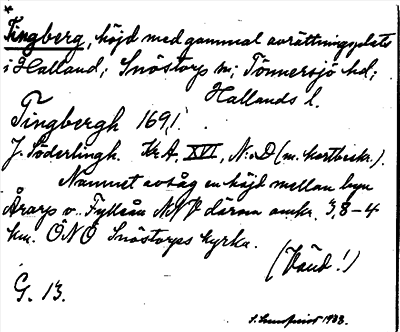 *
Tingberg, höjd med gammal avrättningsplats
i Halland; Snöstorp sn; Tönnersjö hd;
Hallands l.
Tingbergh 1691
J. Söderlingh. Kr A, XVI, N:o D (m. kartbeskr.).
Namnet avsåg en höjd mellan byn
Årarp o. Fylleån NNV därom omkr. 3,8-4
km. ÖNÖ Snöstorps kyrka.
(Vänd!)
G. 13.
1933.